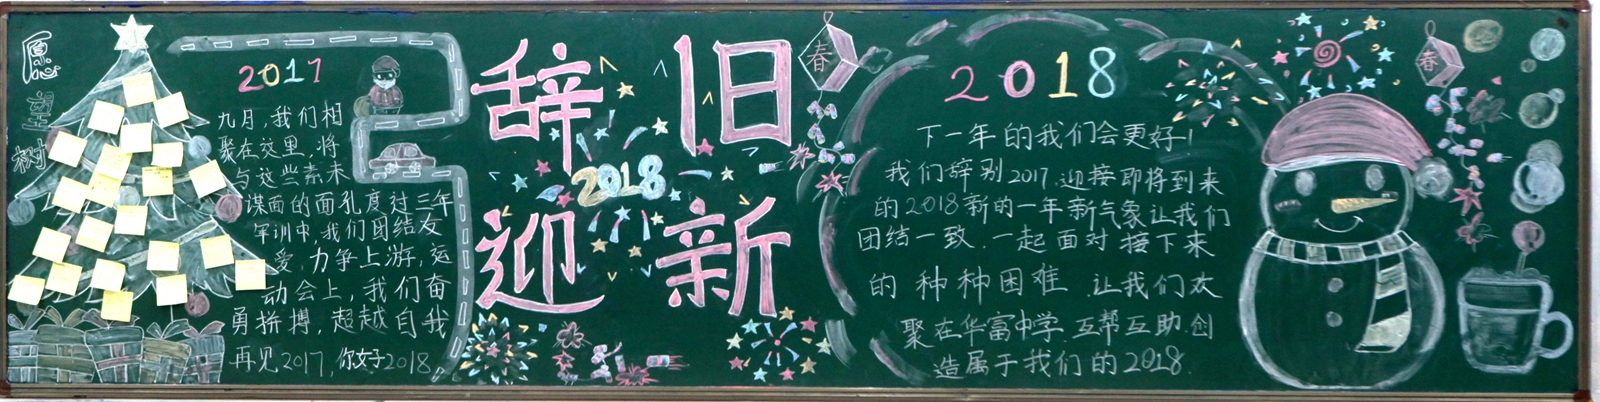 愿
望
树
2017
九月,我们相
聚在这里,将
与这些素未
谋面的面孔度过三年
军训中,我们团结友
爱,力争上游,运
动会上,我们奋
勇拼搏,超越自我
再见2017,你好2018
辞旧
2018
迎新
春
2018
下一年的我们会更好!
我们辞别2017.迎接即将到来
的2018新的一年新气象让我们
团结一致.一起面对接下来
的种种困难.让我们欢
聚在华富中学.互帮互助创
造属于我们的2018.
春